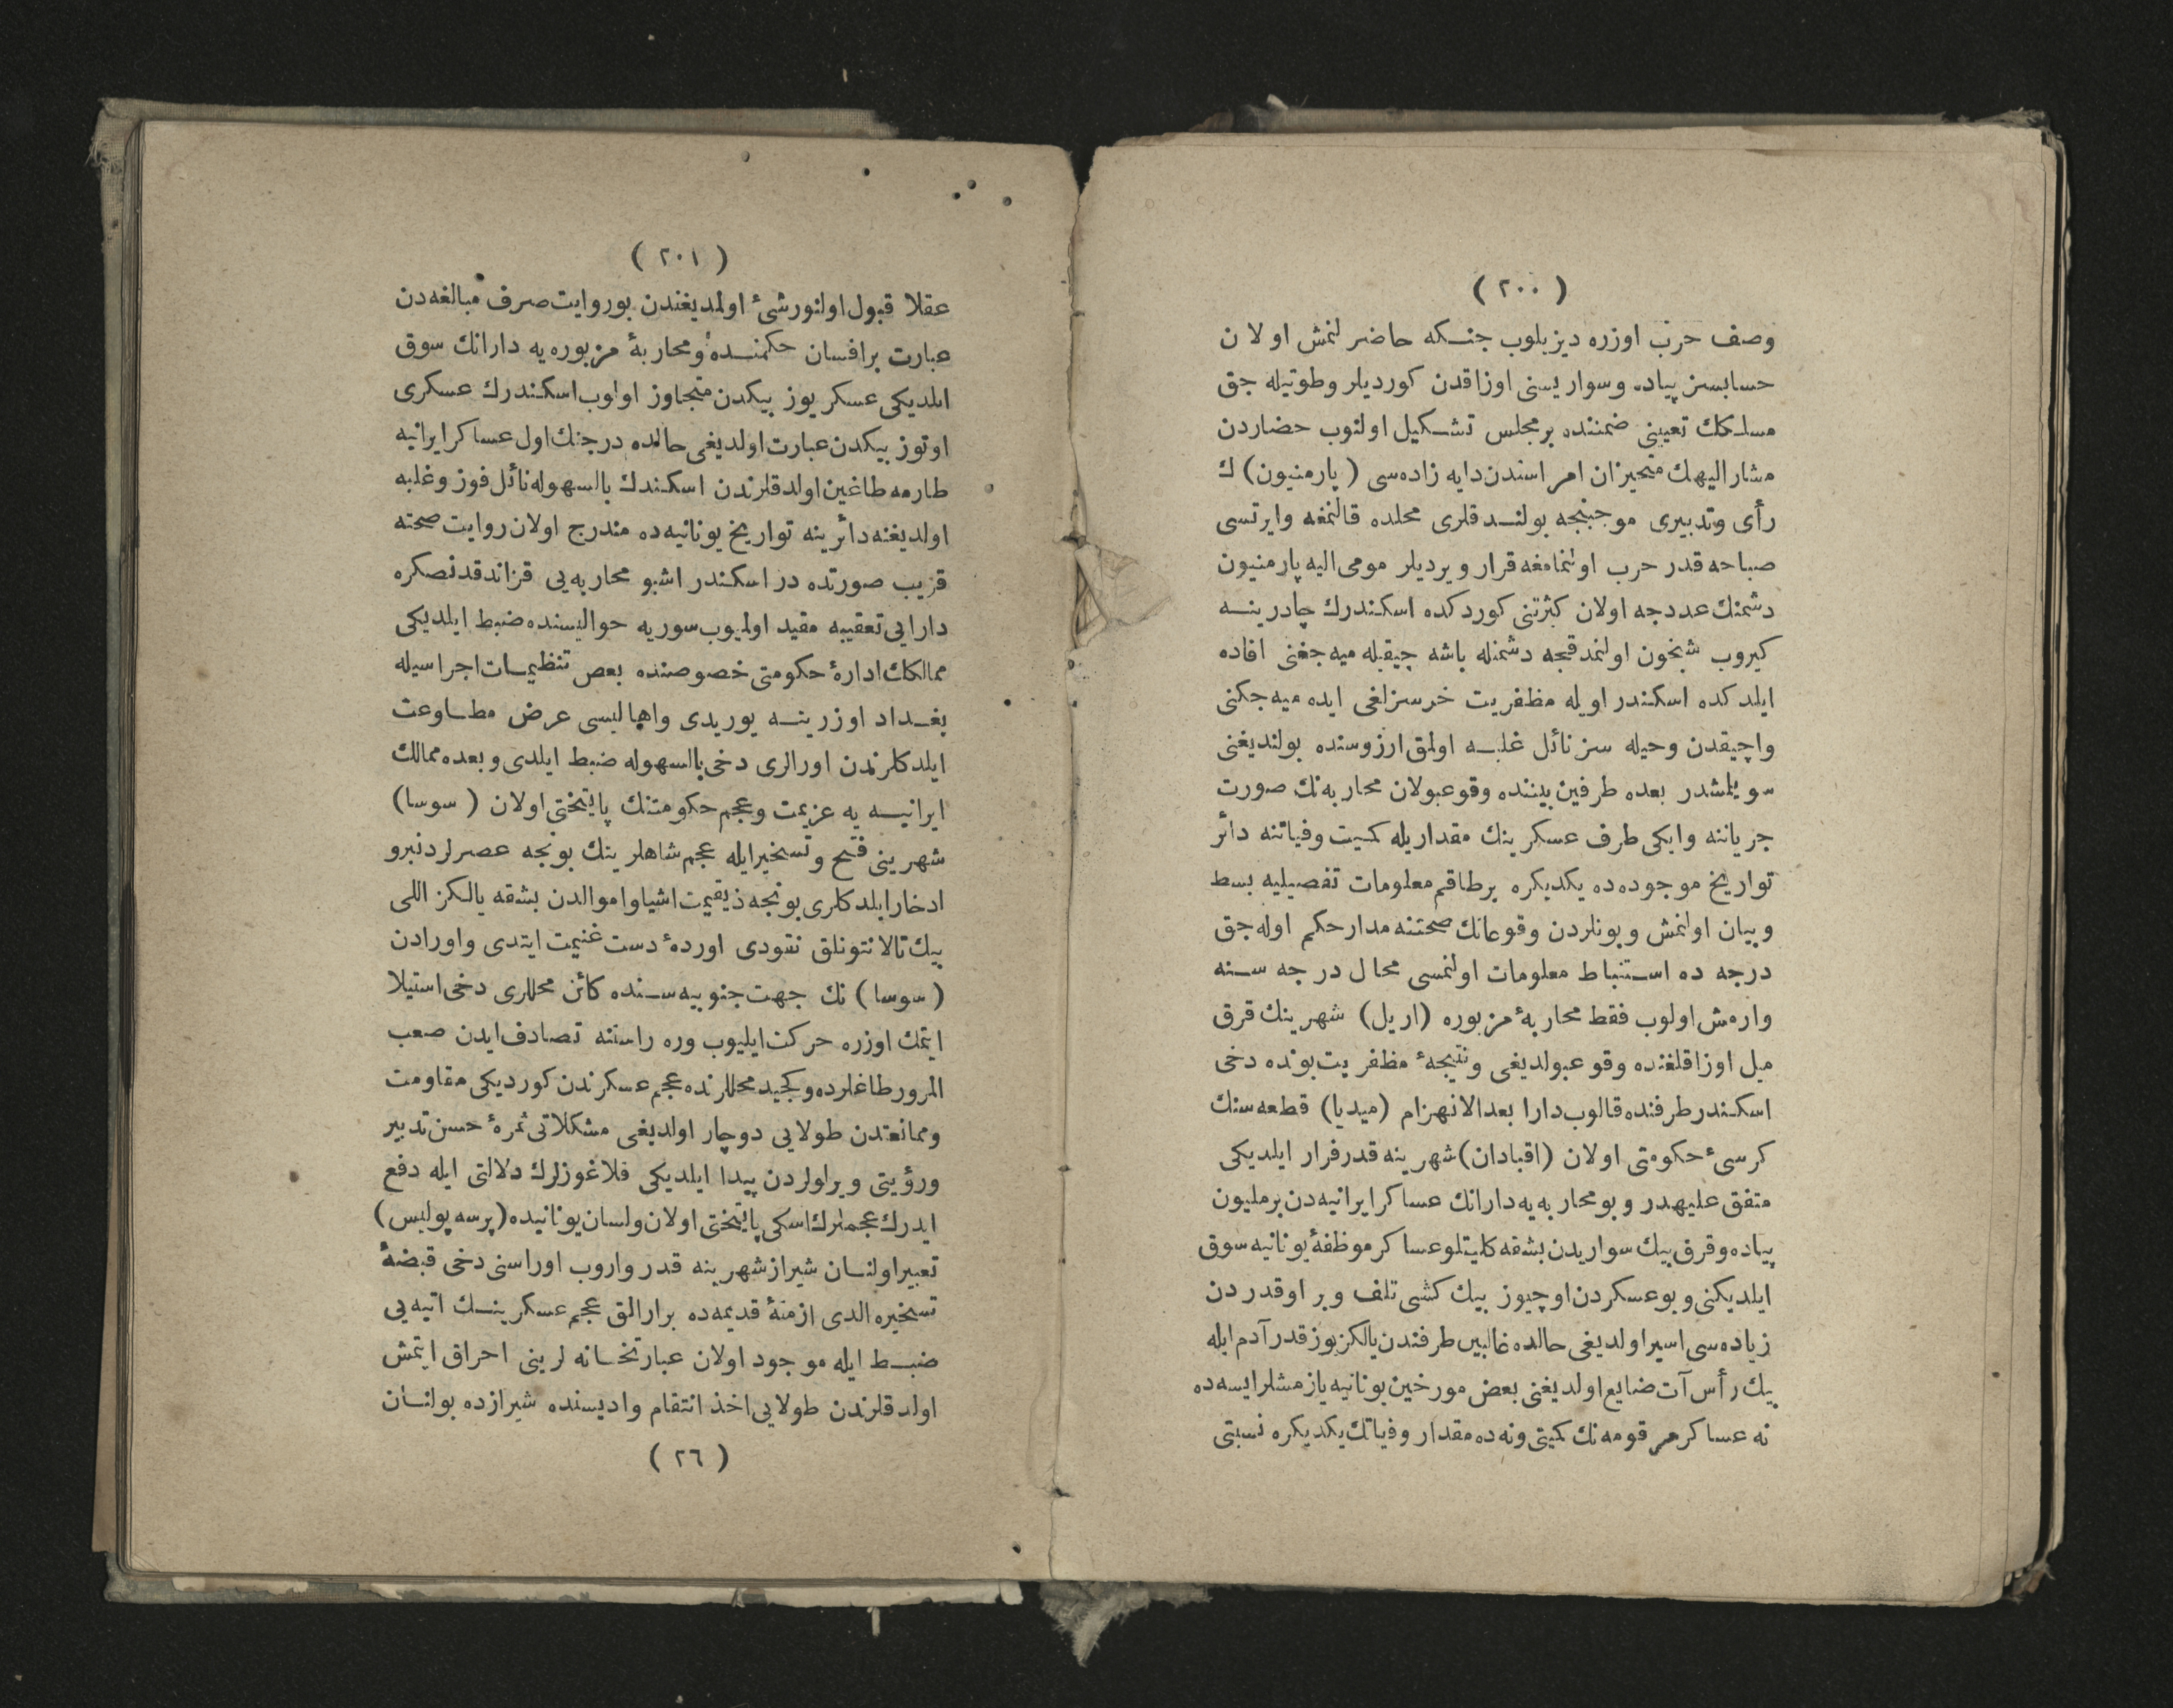 ( ٢٠٠ )
وصف حرب اوزره ديزيلوب جنكه حاضر لنمش اولان
حسابسز پياده وسواريسنى اوزاقدن كورديلر وطوتيله جق
مسلكك تعيينى ضمننده برمجلس تشكيل اولنوب حضاردن
مشار اليهك متحيزان امراسندن دايه زاده سى ( پارمنيون ) ك
رأى وتدبيرى موجبنجه بولندقلرى محلده قالنمغه وايرتسى
صباحه قدر حرب اولنمامغه قرار ويرديلر مومى اليه پارمنيون
دشمنك عددجه اولان كثرتنى كوردكده اسكندرك چادرينه
كيروب شبخون اولنمدقجه دشمنله باشه چيقيله ميه جغنى افاده
ايلدكده اسكندر اويله مظفريت خرسزلغى ايده ميه جكنى
واچيقدن وحيله سز نائل غلبه اولمق ارزوسنده بولنديغنى
سويلمشدر بعده طرفين بيننده وقوعبولان محاربه نك صورت
جرياننه وايكى طرف عسكرينك مقداريله كميت وفياتنه دائر
تواريخ موجوده ده يكديكره برطاقم معلومات تفصيليه بسط
وبيان اولنمش وبونلردن وقوعانك صحتنه مدار حكم اوله جق
درجه ده استنباط معلومات اولنمسى محال درجه سنه
وارمش اولوب فقط محاربهٔ مزبوره (اربل) شهرينك قرق
ميل اوزاقلغنده وقوعبولديغى ونتيجهٔ مظفريت بونده دخى
اسكندر طرفنده قالوب دارا بعد الانهزام (ميديا) قطعه سنك
كرسئ حكومتى اولان (اقبادان) شهرينه قدر فرار ايلديكى
متفق عليهدر وبو محاربه يه دارانك عساكر ايرانيه دن برمليون
پياده وقرق بيك سواريدن بشقه كليتلو عساكر موظفهٔ يونانيه سوق
ايلديكنى وبو عسكردن اوچيوز بيك كشى تلف وبر اوقدردن
زياده سى اسير اولديغى حالده غالبين طرفندن يالكز يوز قدر آدم ايله
بيك رأس آت ضايع اولديغنى بعض مورخين يونانيه يازمشلر ايسه ده
نه عساكر مرقومه نك كميتى ونه ده مقدار وفياتك يكديكره نسبتى
( ٢٠١ )
عقلا قبول اولنور شئ اولمديغندن بو روايت صرف مبالغه دن
عبارت برافسان حكمنده ومحاربهٔ مزبوره يه دارانك سوق
ايلديكى عسكر يوز بيكدن متجاوز اولوب اسكندرك عسكرى
اوتوز بيكدن عبارت اولديغى حالده درجنك اول عساكر ايرانيه
طارمه طاغين اولدقلرندن اسكندك بالسهوله نائل فوز وغلبه
اولديغنه دائرينه تواريخ يونانيه ده مندرج اولان روايت صحته
قريب صورتده در اسكندر اشبو محاربه يى قزاندقدنصكره
دارايى تعقيبه مقيد اولميوب سوريه حواليسنده ضبط ايلديكى
ممالكك ادارهٔ حكومتى خصوصنده بعض تنظيمات اجراسيله
بغداد اوزرينه يوريدى واهاليسى عرض مطاوعت
ايلدكلرندن اورالرى دخى بالسهوله ضبط ايلدى وبعده ممالك
ايرانيه يه عزيمت وعجم حكومتنك پايتختى اولان ( سوسا )
شهرينى فتح وتسخير ايله عجم شاهلرينك بونجه عصرلردنبرو
ادخار ايلدكلرى بونجه ذيقيمت اشيا واموالدن بشقه يالكز اللى
بيك تالانتونلق نقودى اوردهٔ دست غنيمت ايتدى واورادن
( سوسا ) نك جهت جنوبيه سنده كائن محللرى دخى استيلا
ايتمك اوزره حركت ايليوب وره راستنه تصادف ايدن صعب
المرور طاغلرده وكچيد محللرنده عجم عسكرندن كورديكى مقاومت
وممانعتدن طولايى دوچار اولديغى مشكلاتى ثمرهٔ حسن تدبير
ورؤيتى ويراولردن پيدا ايلديكى قلاغوزلرك دلالتى ايله دفع
ايدرك عجملرك اسكى پايتختى اولان ولسان يونانيده (پرسه پوليس)
تعبير اولنان شيراز شهرينه قدر واروب اوراسنى دخى قبضهٔ
تسخيره الدى ازمنهٔ قديمه ده برارالق عجم عسكرينك اتيه يى
ضبط ايله موجود اولان عبارتخانه لرينى احراق ايتمش
اولدقلرندن طولايى اخذ انتقام واديسنده شيرازده بولنان
( ٢٦ )